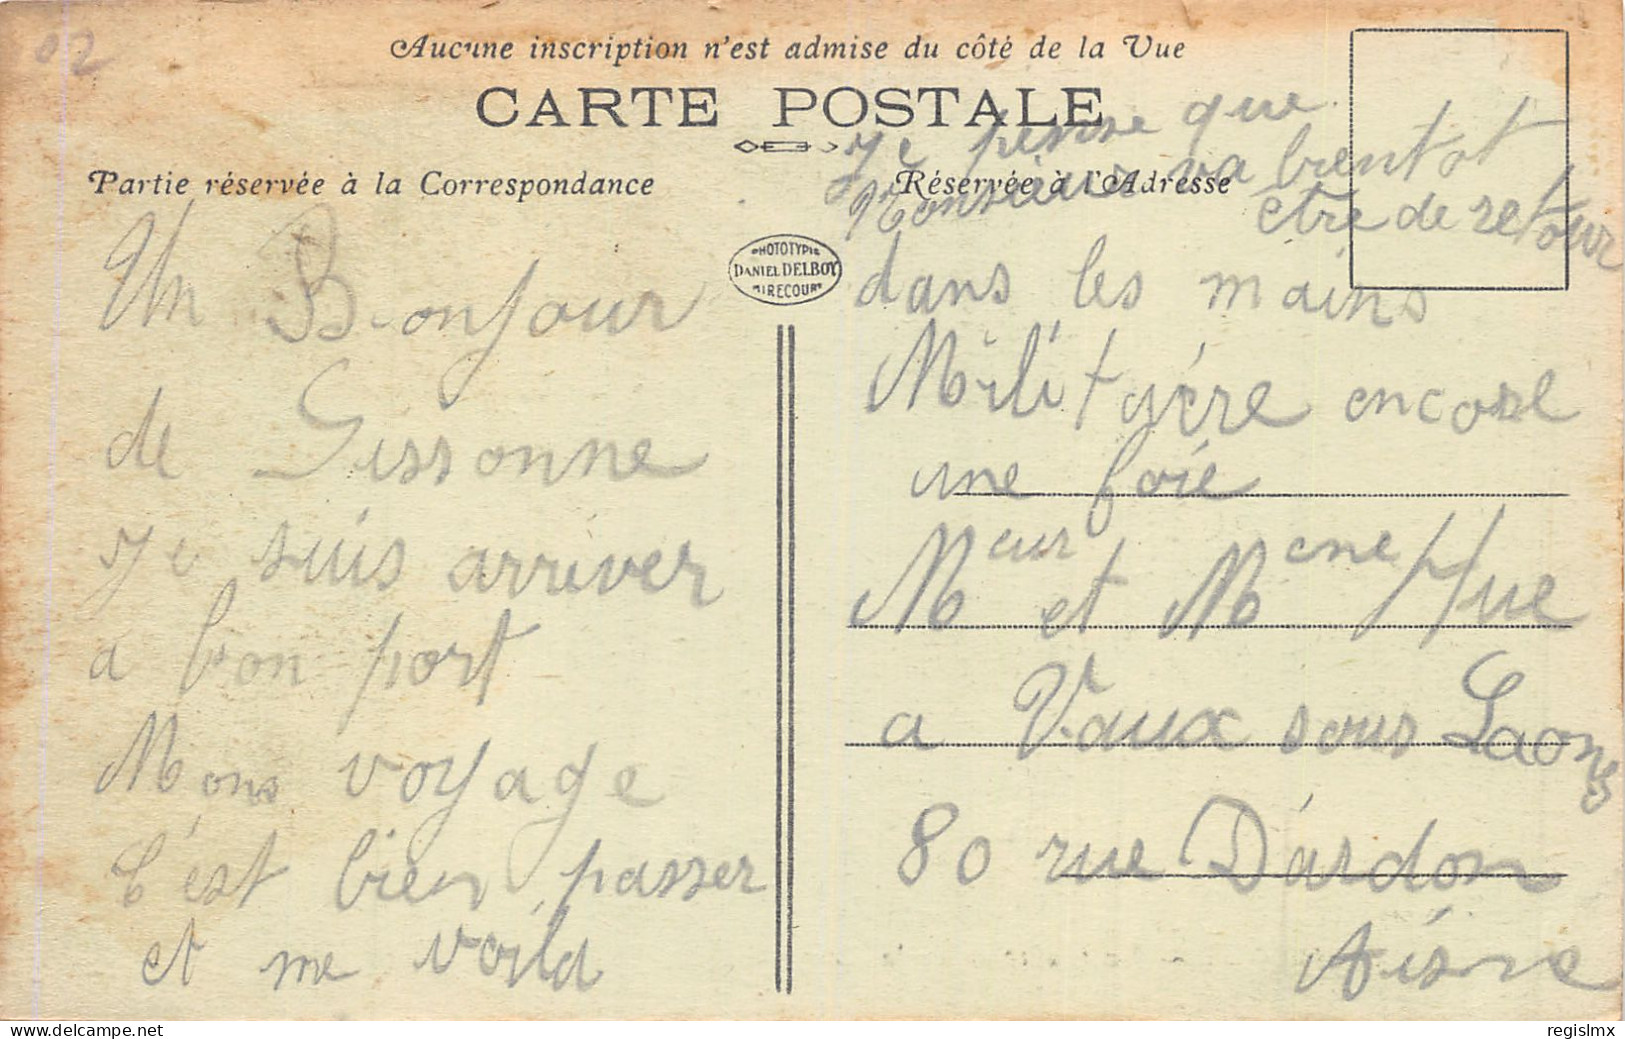 02
Aucune inscription n'est admise du côté de la Vue
CARTE POSTALE
Partie réservée à la Correspondance
Réservée à l'Adresse
PHOTOTYPIE
DANIEL DELBOY
MIRECOURT
Un Bonjour
de Sissonne
Je suis arriver
a bon port
Mons voyage
C'est bien passer
et me voila
Je pense que
Monsieur va bientot
être de retour
dans les mains
Militaére encore
une foie
Meur et Mene Hue
a Vaux sous Laons
80 rue D'ardon
Aisne
regislmx